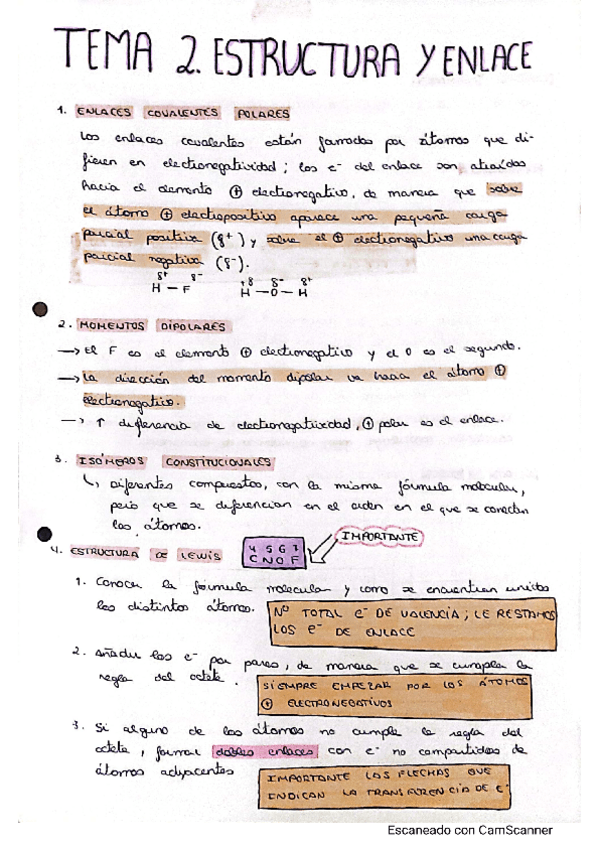 TEMA 2. ESTRUCTURA Y ENLACE
1. ENLACES COVALENTES POLARES
Los enlaces covalentes están formados por átomos que di-
fieren en electronegatividad; los e⁻ del enlace son atraídos
hacia el elemento ⊕ electronegativo, de manera que sobre
el átomo ⊕ electropositivo aparece una pequeña carga
parcial positiva (δ⁺) y sobre el ⊕ electronegativo una carga
parcial negativa (δ⁻).
δ⁺ δ⁻ +δ δ⁻ δ⁺
H – F H – O – H
2. MOMENTOS DIPOLARES
→ El F es el elemento ⊕ electronegativo y el O es el segundo.
→ La dirección del momento dipolar va hacia el átomo ⊕
electronegativo.
→ ↑ diferencia de electronegatividad, ⊕ polar es el enlace.
3. ISÓMEROS CONSTITUCIONALES
↳ Diferentes compuestos, con la misma fórmula molecular,
pero que se diferencian en el orden en el que se conectan
los átomos.
IMPORTANTE
4. ESTRUCTURA DE LEWIS
4 5 6 7
C N O F
1. Conocer la fórmula molecular y como se encuentran unidos
los distintos átomos.
Nº TOTAL e⁻ DE VALENCIA; LE RESTAMOS
LOS e⁻ DE ENLACE
2. Añadir los e⁻ por pares, de manera que se cumpla la
regla del octete.
SIEMPRE EMPEZAR POR LOS ÁTOMOS
⊕ ELECTRONEGATIVOS
3. Si alguno de los átomos no cumple la regla del
octete, formar dobles enlaces con e⁻ no compartidos de
átomos adyacentes
IMPORTANTE LAS FLECHAS QUE
INDICAN LA TRANSFERENCIA DE e⁻
Escaneado con CamScanner